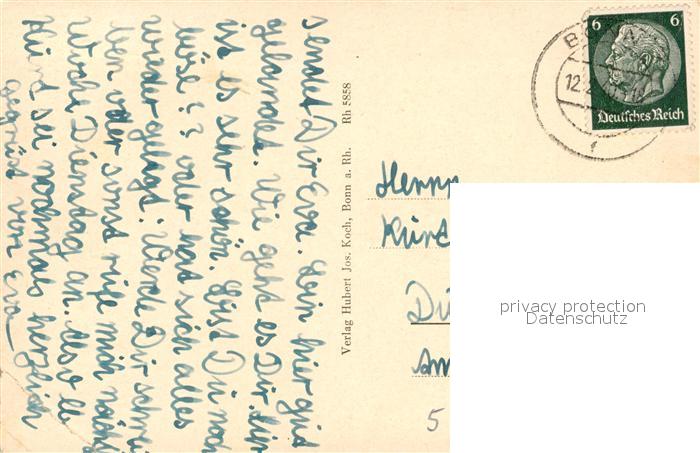 sendet Dir Eva. Bin hier gut
gelandet. Wie geht es Dir. hier
ist es sehr schön. Bist Du noch
böse?? oder hat sich alles
wieder gelegt. Werde Dir schrei
ben oder sonst rufe mich nächst
Woche Dienstag an. Also lb
Kurt sei nochmals herzlich
gegrüst von Eva
Verlag Hubert Jos. Koch, Bonn a. Rh. Rh 5858
6 6
Deutsches Reich
12.2
Herrn
Kurt
Dü
Am
5
privacy protection
Datenschutz